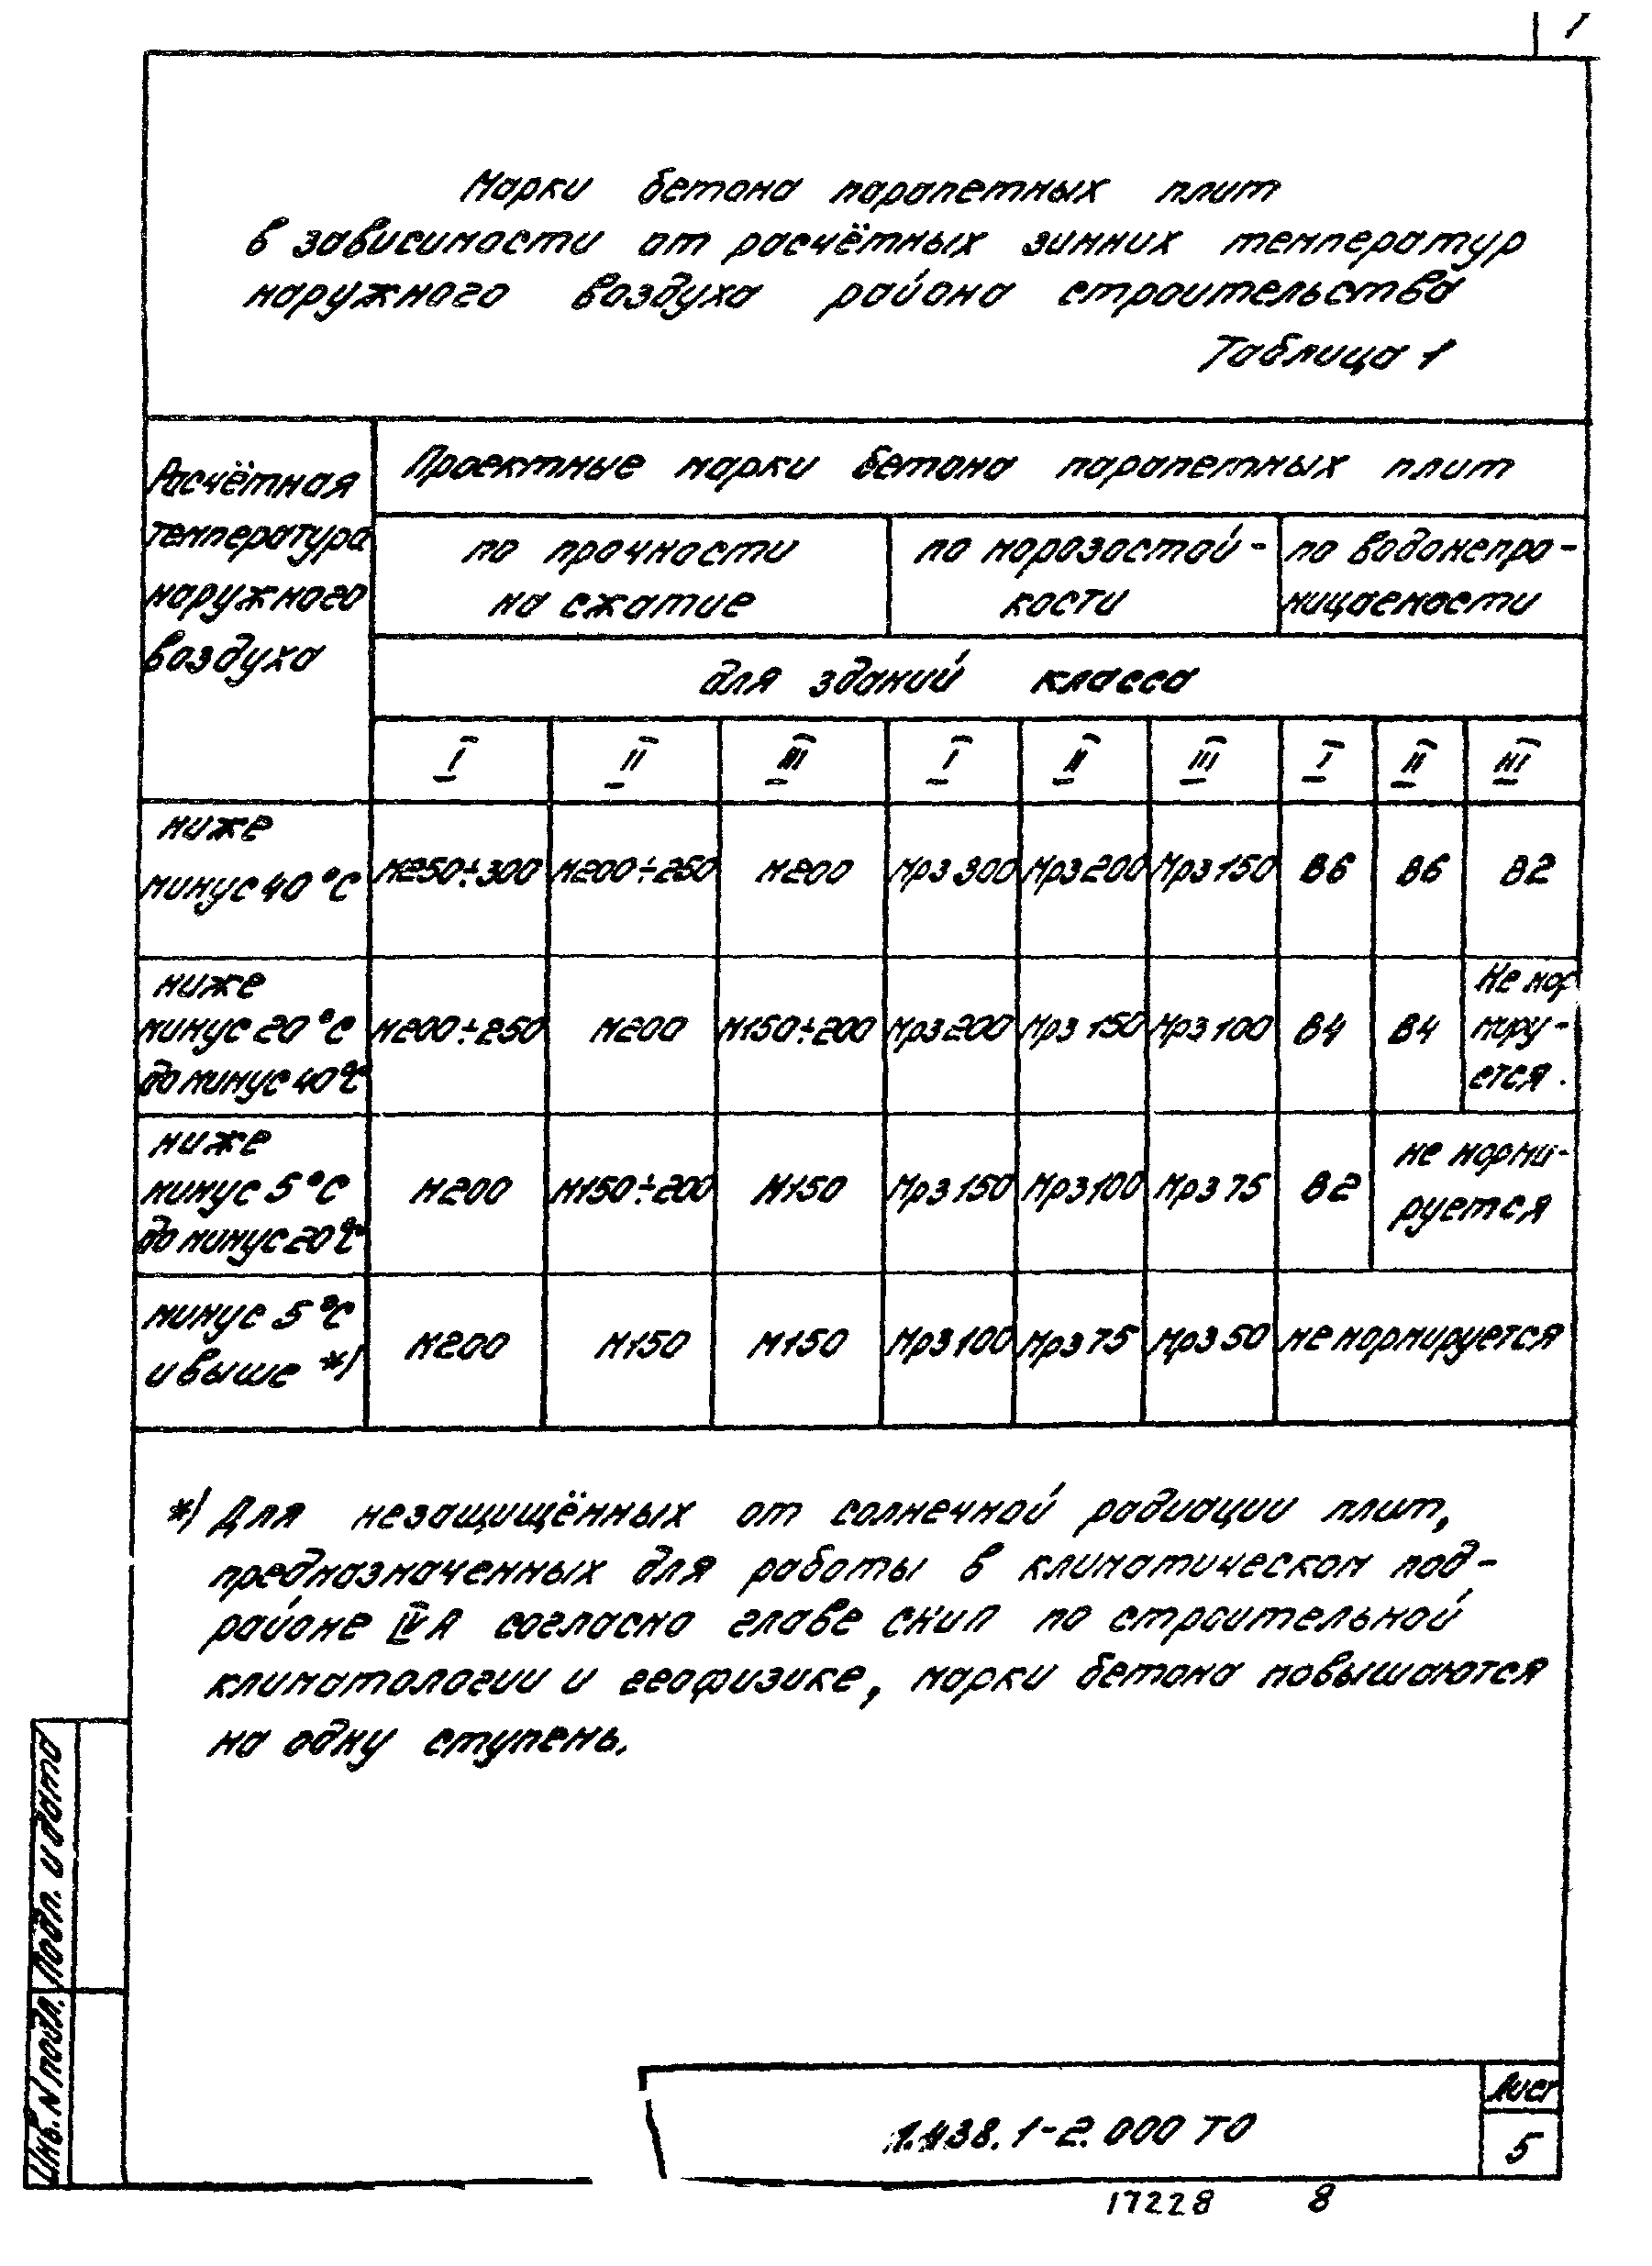 Марки бетона парапетных плит
в зависимости от расчётных зимних температур
наружного воздуха района строительства
Таблица 1
Расчётная
температура
наружного
воздуха
Проектные марки бетона парапетных плит
по прочности
на сжатие
по морозостой-
кости
по водонепро-
ницаемости
для зданий класса
I II III I II III I II III
ниже
минус 40 °С
М250÷300 М200÷250 М200 Мрз 300 Мрз 200 Мрз 150 В6 В6 В2
ниже
минус 20 °С
до минус 40 °С
М200÷250 М200 М150÷200 Мрз 200 Мрз 150 Мрз 100 В4 В4
Не нор
миру-
ется.
ниже
минус 5 °С
до минус 20 °С
М200 М150÷200 М150 Мрз 150 Мрз 100 Мрз 75 В2
не норми-
руется
минус 5 °С
и выше *)
М200 М150 М150 Мрз 100 Мрз 75 Мрз 50 не нормируется
*) Для незащищённых от солнечной радиации плит,
предназначенных для работы в климатическом под-
районе IV А согласно главе СНиП по строительной
климатологии и геофизике, марки бетона повышаются
на одну ступень.
Инв. N подл.
Подп. и дата
1.438.1-2.000 ТО
Лист
5
17228 8